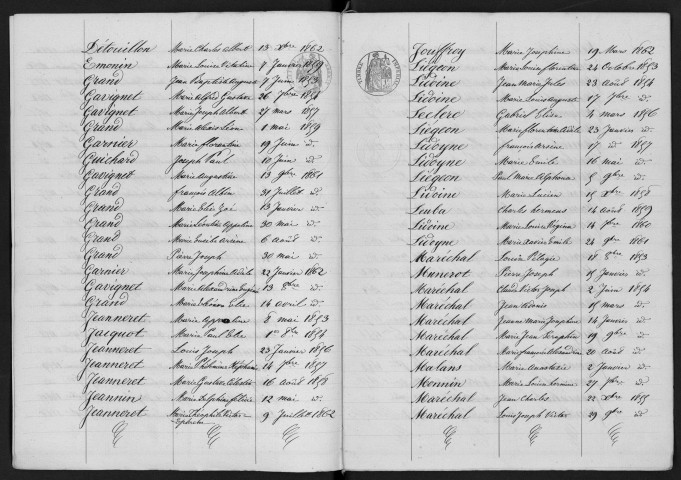 Détouillon Marie Charles Albert 13 Xbre 1862
Emonin Marie Louise 7 Janvier 1859
Grand Jean Baptiste 7 Juin
Gavignet Marie Alfred Gustave 26 7bre 1854
Gavignet Marie Joseph Albert 27 mars 1857
Grand Marie Léon 1 mai 1859
Garnier Marie florentine 19 Juin d°
Guichard Joseph Paul 10 Juin d°
Gavignet Marie Augustine 13 9bre 1861
Grand françois Albin 31 Juillet d°
Grand Marie Zoé 13 Janvier d°
Grand Marie Appoline 30 mai d°
Grand Marie Emile Arsène 6 août d°
Grand Pierre Joseph 30 mai d°
Garnier Marie Joséphine Adèle 22 Janvier 1862
Gavignet Marie 13 8bre d°
Grand Marie Elie 14 avril d°
Jeanneret Marie Appoline 8 mai 1853
Jacquot Marie Paul Elie 1er 8bre 1854
Jeanneret Louis Joseph 23 Janvier 1856
Jeanneret Marie Philomène 14 7bre 1857
Jeanneret Marie Gustave Célestin 16 août 1858
Jeannin Marie Delphine 12 mai d°
Jeanneret Marie Théophile Victor 9 Juillet 1862
Jouffroy Marie Joséphine 19 Mars 1862
Liégeon Marie Louise florentine 24 Octobre 1853
Lidoine Jean Marie Jules 23 août 1854
Lidoine Marie Louis Auguste 17 7bre d°
Leclerc Gabriel Elisa 4 mars 1856
Liégeon Marie florentine Adèle 23 Janvier d°
Lidoyne françois Arsène 17 d° 1857
Lidoyne Marie Emile 16 mai d°
Liégeon Paul Marie Alphonse 5 9bre d°
Lidoine Marie Lucien 15 Xbre 1858
Leuba Charles 14 août 1859
Lidoine Marie Louise Régina 14 7bre 1860
Lidoyne Marie Xavier Emile 24 9bre 1861
Maréchal Louise Pélagie 18 8bre 1853
Pierre Joseph 15 Janvier d°
Maréchal Claude Victor Joseph 2 Juin 1854
Maréchal Jean 15 mars d°
Maréchal Jeanne Marie Joséphine 14 Janvier d°
Maréchal Marie Jean Séraphin 19 9bre d°
Maréchal Marie françois Alexandre 20 août d°
Malans Marie Anastasie 2 Janvier d°
Monnin Marie Louise 27 7bre d°
Maréchal Jean Charles 22 Xbre 1855
Maréchal Louis Joseph Victor 29 9bre d°